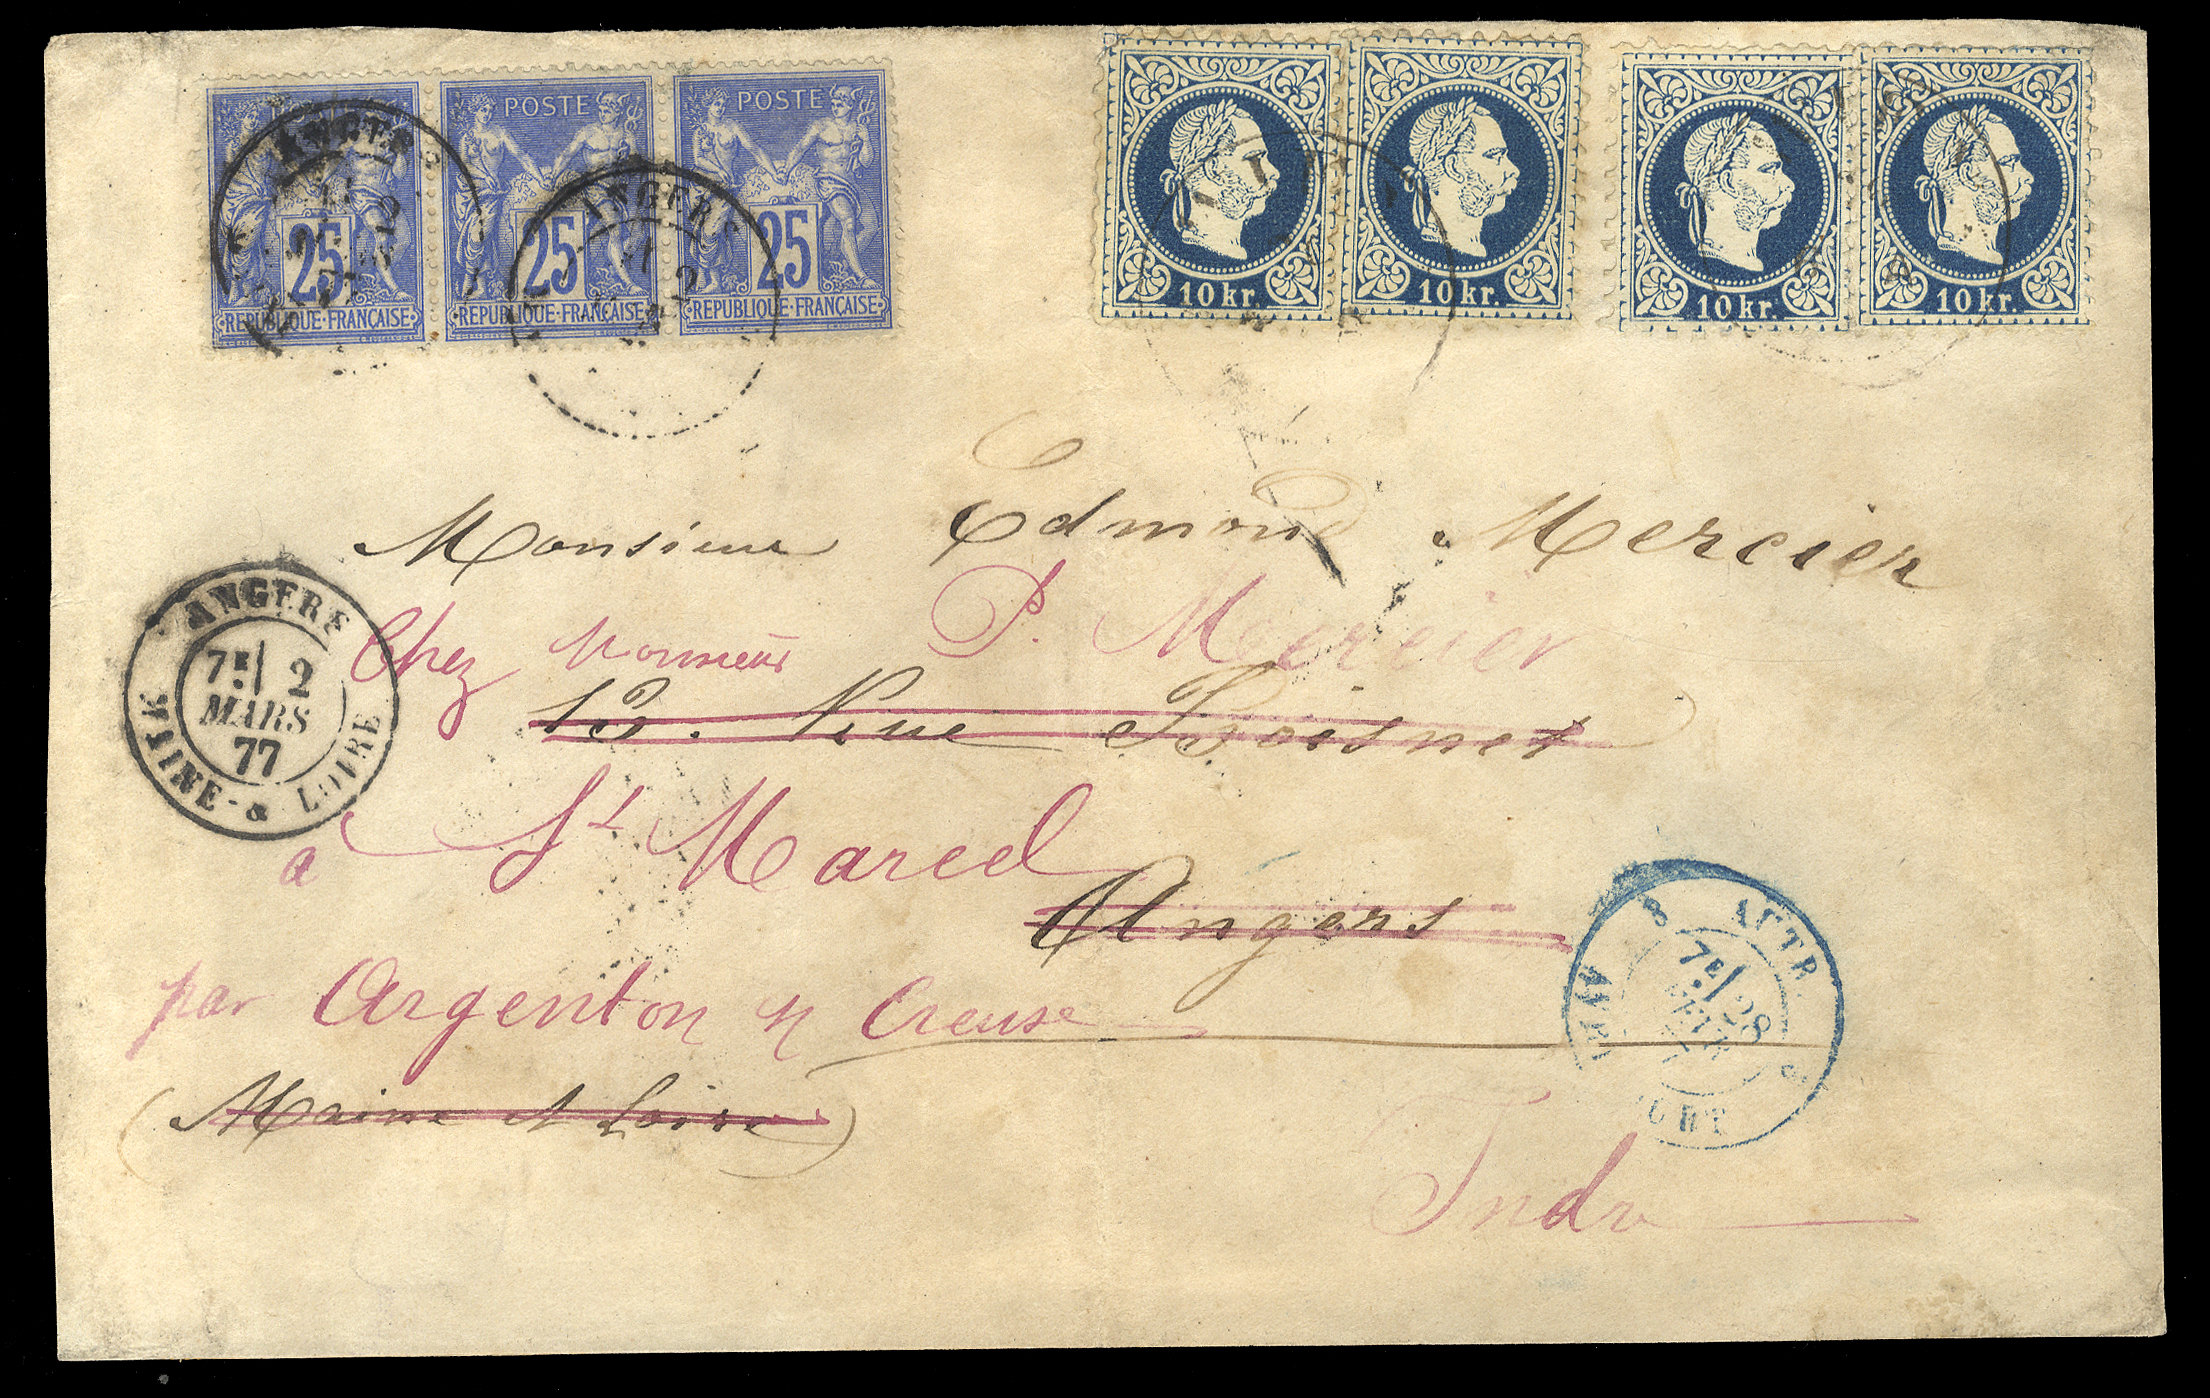 25 REPUBLIQUE·FRANÇAISE
POSTE 25 REPUBLIQUE·FRANÇAISE
POSTE 25 REPUBLIQUE·FRANÇAISE
10 kr.
10 kr.
10 kr.
10 kr.
ANGERS
ANGERS
Monsieur Edmond Mercier
Chez Monsieur P. Mercier
13. Rue Boisnet
à St Marcel
Angers
par Argenton s/ Creuse
(Maine et Loire)
Indre
ANGERS
7E 2
MARS
77
MAINE-& LOIRE
AUTR.
7E 28